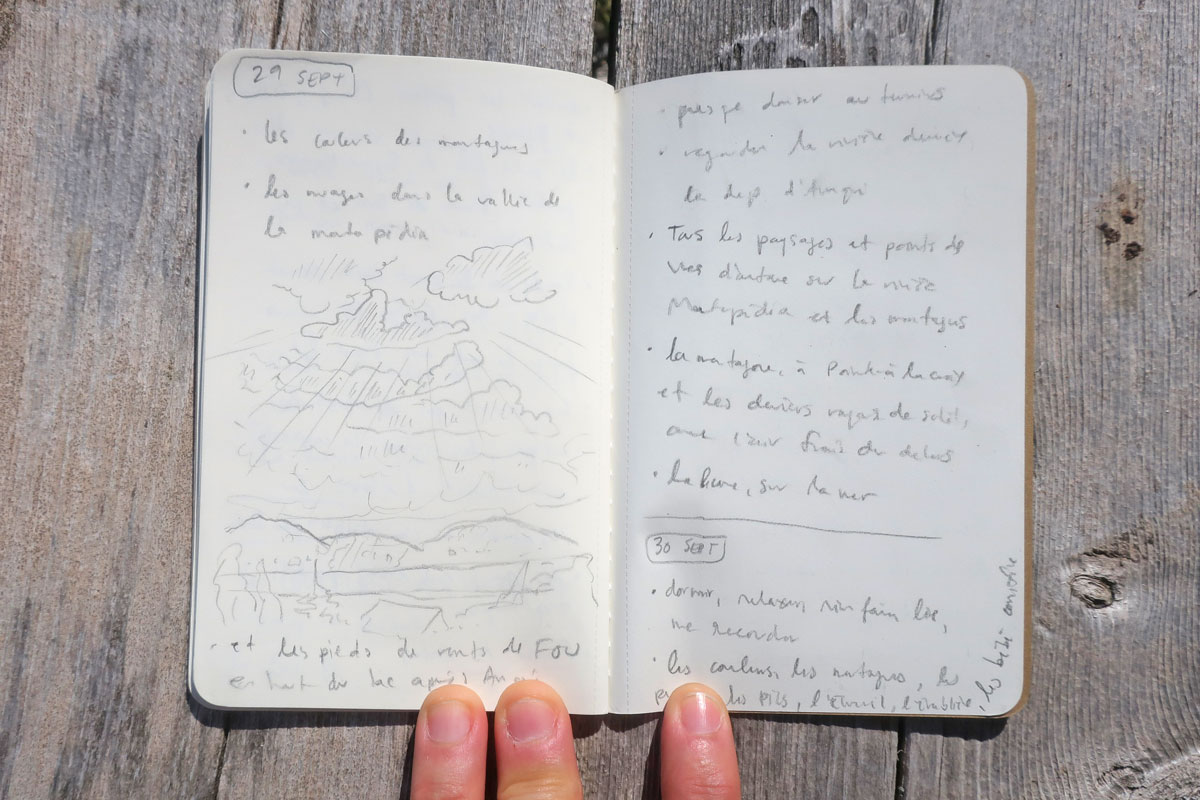 29 SEPT
· les couleurs des montagnes
· les nuages dans la vallée de
la matapédia
· et les pieds de vents de FOU
en haut du lac après
· presque au
· regarder la rivière
la dep d'Amqui
· Tous les paysages et points de
vues d'autour sur la rivière
Matapédia et les montagnes
· la montagne, à Pointe à la croix
et les derniers rayons de soleil,
avec l'air frais du dehors
· la lune, sur la mer
30 SEPT
· dormir, relaxer, rien faire
me
· les couleurs, les montagnes, les
les pics, l'érablière, les